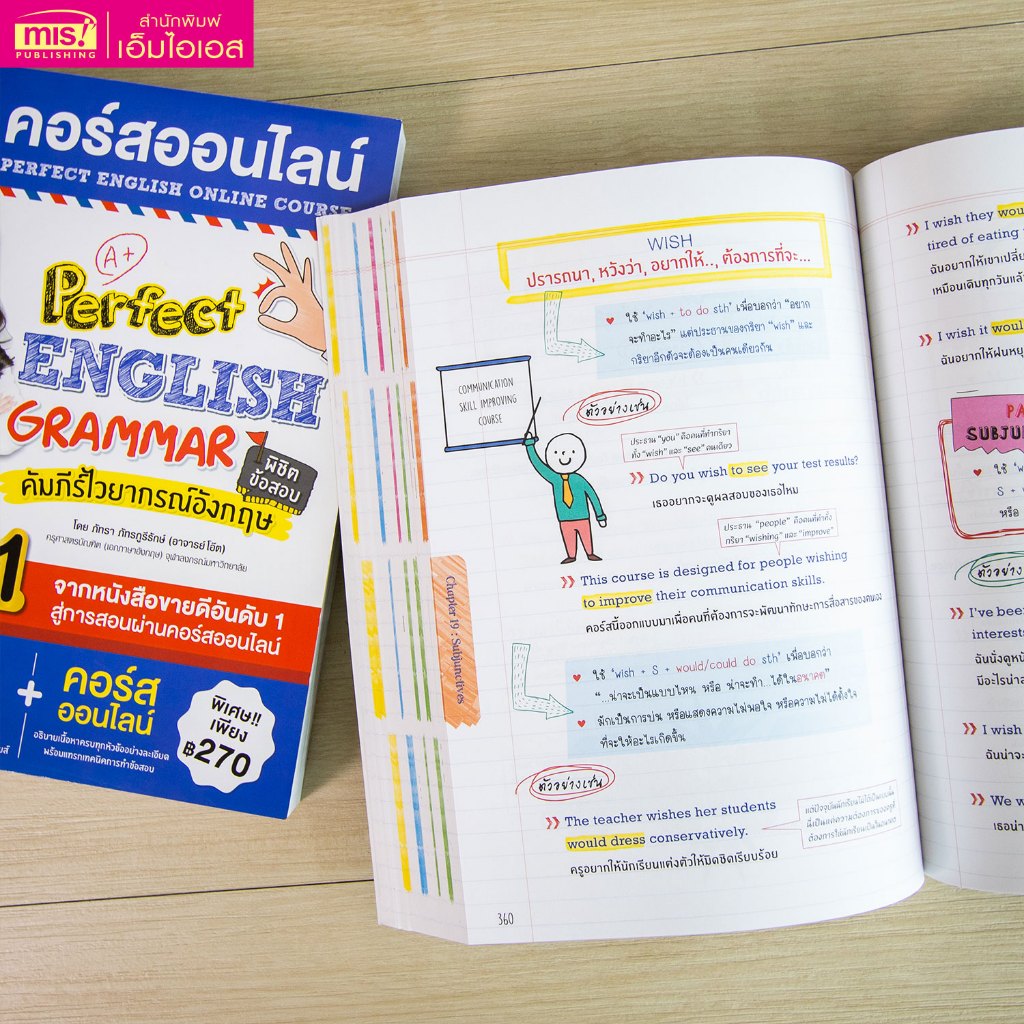 mis!
PUBLISHING
สำนักพิมพ์
เอ็มไอเอส
คอร์สออนไลน์
PERFECT ENGLISH ONLINE COURSE
A+
Perfect
ENGLISH
GRAMMAR
พิชิต
ข้อสอบ
คัมภีร์ไวยากรณ์อังกฤษ
โดย ภัทรา ภัทรภูรีรักษ์ (อาจารย์โอ๊ต)
ครุศาสตรบัณฑิต (เอกภาษาอังกฤษ) จุฬาลงกรณ์มหาวิทยาลัย
1
จากหนังสือขายดีอันดับ 1
สู่การสอนผ่านคอร์สออนไลน์
+
คอร์ส
ออนไลน์
อธิบายเนื้อหาครบทุกหัวข้ออย่างละเอียด
พร้อมแทรกเทคนิคการทำข้อสอบ
พิเศษ!!
เพียง
฿270
WISH
ปรารถนา, หวังว่า, อยากให้.., ต้องการที่จะ...
ใช้ 'wish + to do sth' เพื่อบอกว่า "อยาก
จะทำอะไร" แต่ประธานของกริยา "wish" และ
กริยาอีกตัวจะต้องเป็นคนเดียวกัน
COMMUNICATION
SKILL IMPROVING
COURSE
ตัวอย่างเช่น
ประธาน "you" คือคนที่ทำกริยา
ทั้ง "wish" และ "see" คนเดียว
Do you wish to see your test results?
เธออยากจะดูผลสอบของเธอไหม
ประธาน "people" คือคนที่ทำทั้ง
กริยา "wishing" และ "improve"
This course is designed for people wishing
to improve their communication skills.
คอร์สนี้ออกแบบมาเพื่อคนที่ต้องการจะพัฒนาทักษะการสื่อสารของตนเอง
Chapter 19 : Subjunctives
ใช้ 'wish + S + would/could do sth' เพื่อบอกว่า
"...น่าจะเป็นแบบไหน หรือ น่าจะทำ...ได้ในอนาคต"
มักเป็นการบ่น หรือแสดงความไม่พอใจ หรือความไม่ได้ตั้งใจ
ที่จะให้อะไรเกิดขึ้น
ตัวอย่างเช่น
The teacher wishes her students
would dress conservatively.
ครูอยากให้นักเรียนแต่งตัวให้มิดชิดเรียบร้อย
360
I wish they
tired of eating
ฉันอยากให้เขาเปลี่ย
เหมือนเดิมทุกวันแล้
I wish it
ฉันอยากให้ฝนหยุ
PA
SUBJU
S +
หรือ
ตัวอย่าง
I've bee
interest
ฉันนั่งดูหนั
มีอะไรน่าส
I wish
ฉันน่าจะ
We w
เธอน่า